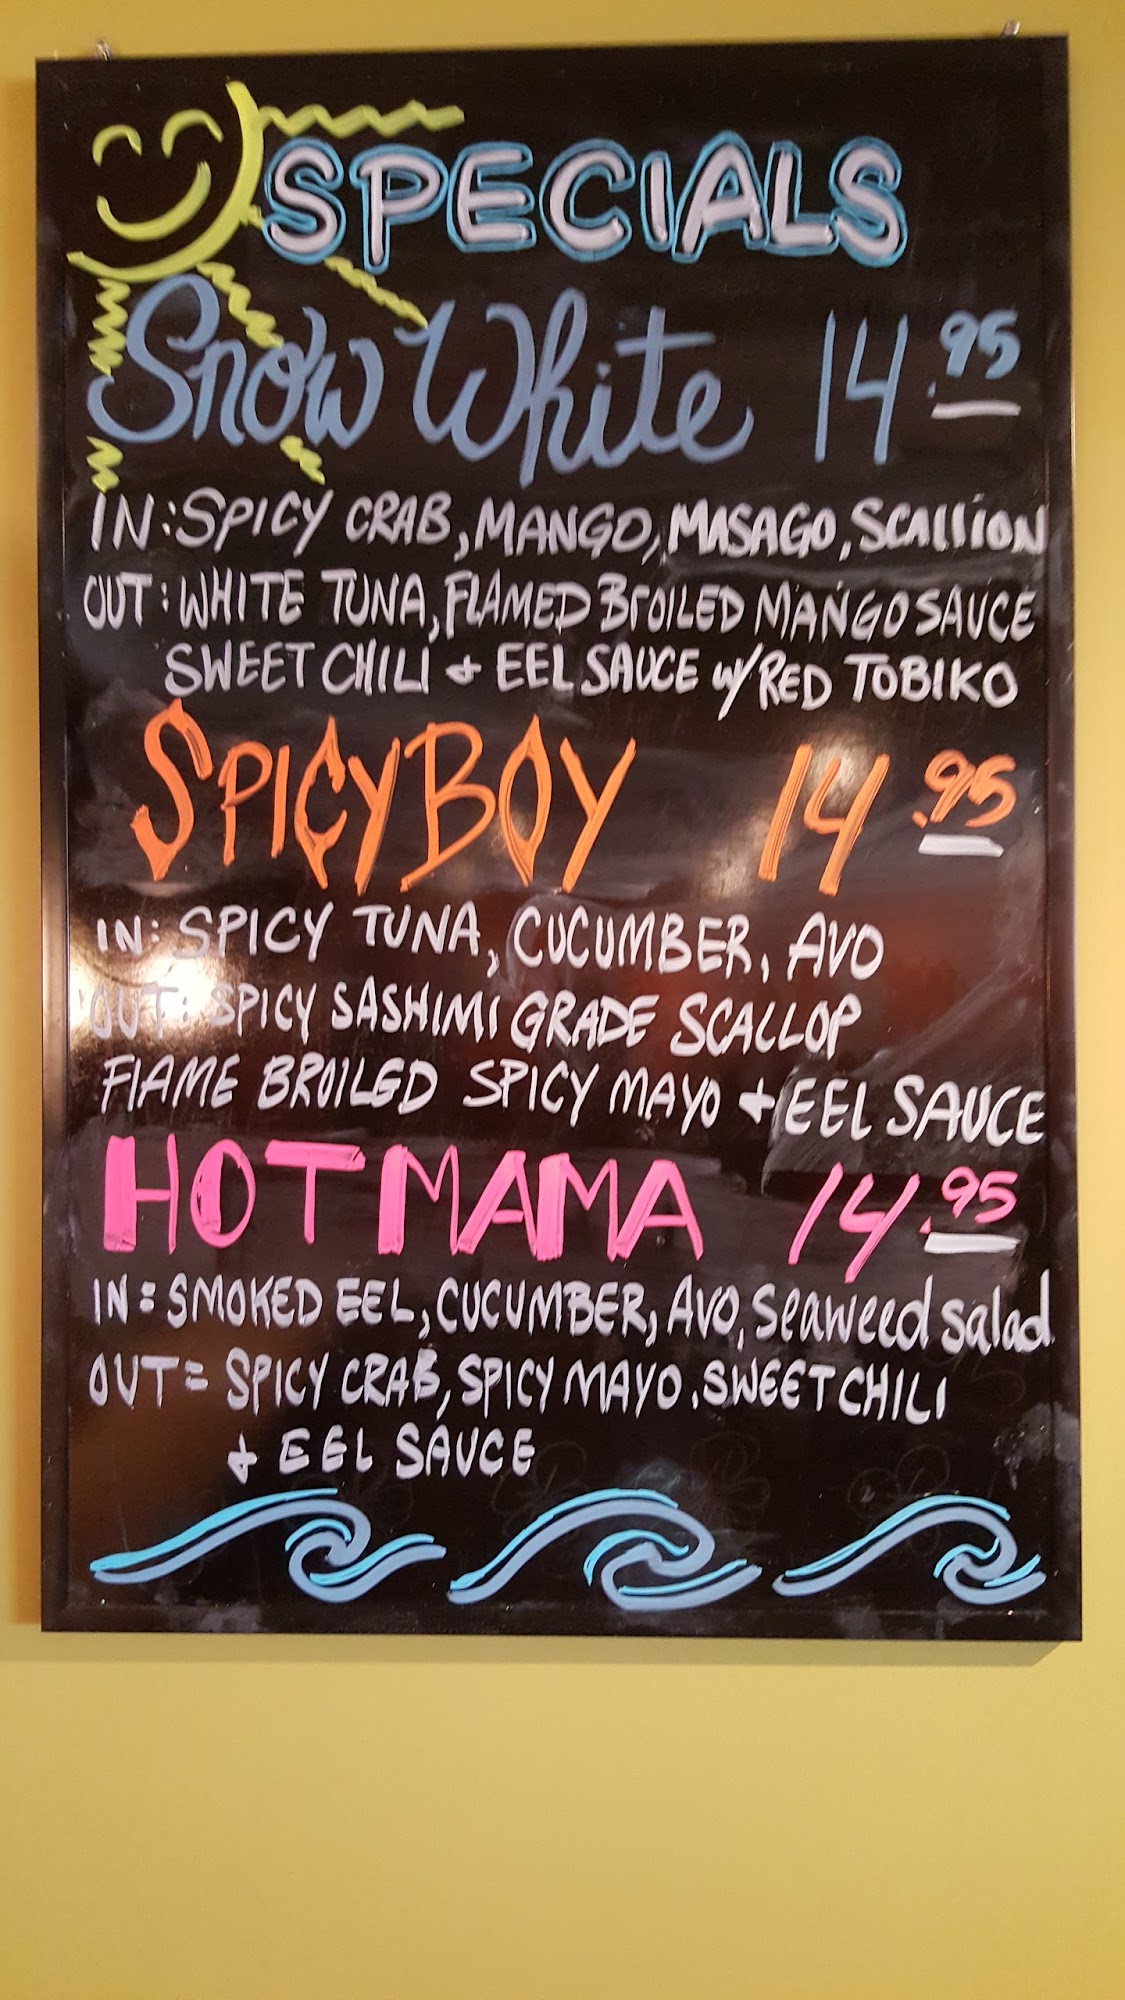 SPECIALS
Snow White 14.95
IN: SPICY CRAB, MANGO, MASAGO, SCAllION
OUT: WHITE TUNA, FLAMED BrOILED MANGO SAUCE
SWEET CHILI + EEL SAUCE w/ RED TOBIKO
SPICY BOY 14.95
IN: SPICY TUNA, CUCUMBER, AVO
OUT: SPICY SASHIMI GRADE SCALLOP
FlAME BROILED SPICY MAYO + EEL SAUCE
HOT MAMA 14.95
IN: SMOKED EEL, CUCUMBER, AVO, Seaweed salad
OUT= SPICY CRAB, SPICY MAYO, SWEET CHILI
+ EEL SAUCE